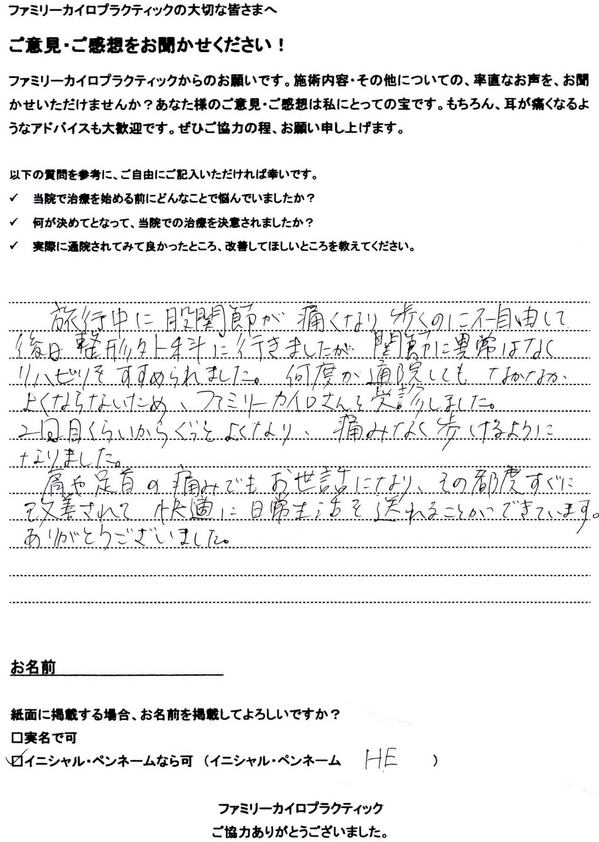 ファミリーカイロプラクティックの大切な皆さまへ
ご意見・ご感想をお聞かせください！
ファミリーカイロプラクティックからのお願いです。施術内容・その他についての、率直なお声を、お聞
かせいただけませんか？あなた様のご意見・ご感想は私にとっての宝です。もちろん、耳が痛くなるよ
うなアドバイスも大歓迎です。ぜひご協力の程、お願い申し上げます。
以下の質問を参考に、ご自由にご記入いただければ幸いです。
✓ 当院で治療を始める前にどんなことで悩んでいましたか？
✓ 何が決めてとなって、当院での治療を決意されましたか？
✓ 実際に通院されてみて良かったところ、改善してほしいところを教えてください。
旅行中に股関節が痛くなり歩くのに不自由して
後日整形外科に行きましたが関節に異常はなく
リハビリをすすめられました。何度か通院してもなかなか
よくならないため、ファミリーカイロさんを受診しました。
2回目くらいからぐっとよくなり、痛みなく歩けるように
なりました。
肩や足首の痛みでもお世話になり、その都度すぐに
改善されて快適に日常生活を送れることができています。
ありがとうございました。
お名前
紙面に掲載する場合、お名前を掲載してよろしいですか？
□実名で可
☑イニシャル・ペンネームなら可 （イニシャル・ペンネーム HE ）
ファミリーカイロプラクティック
ご協力ありがとうございました。